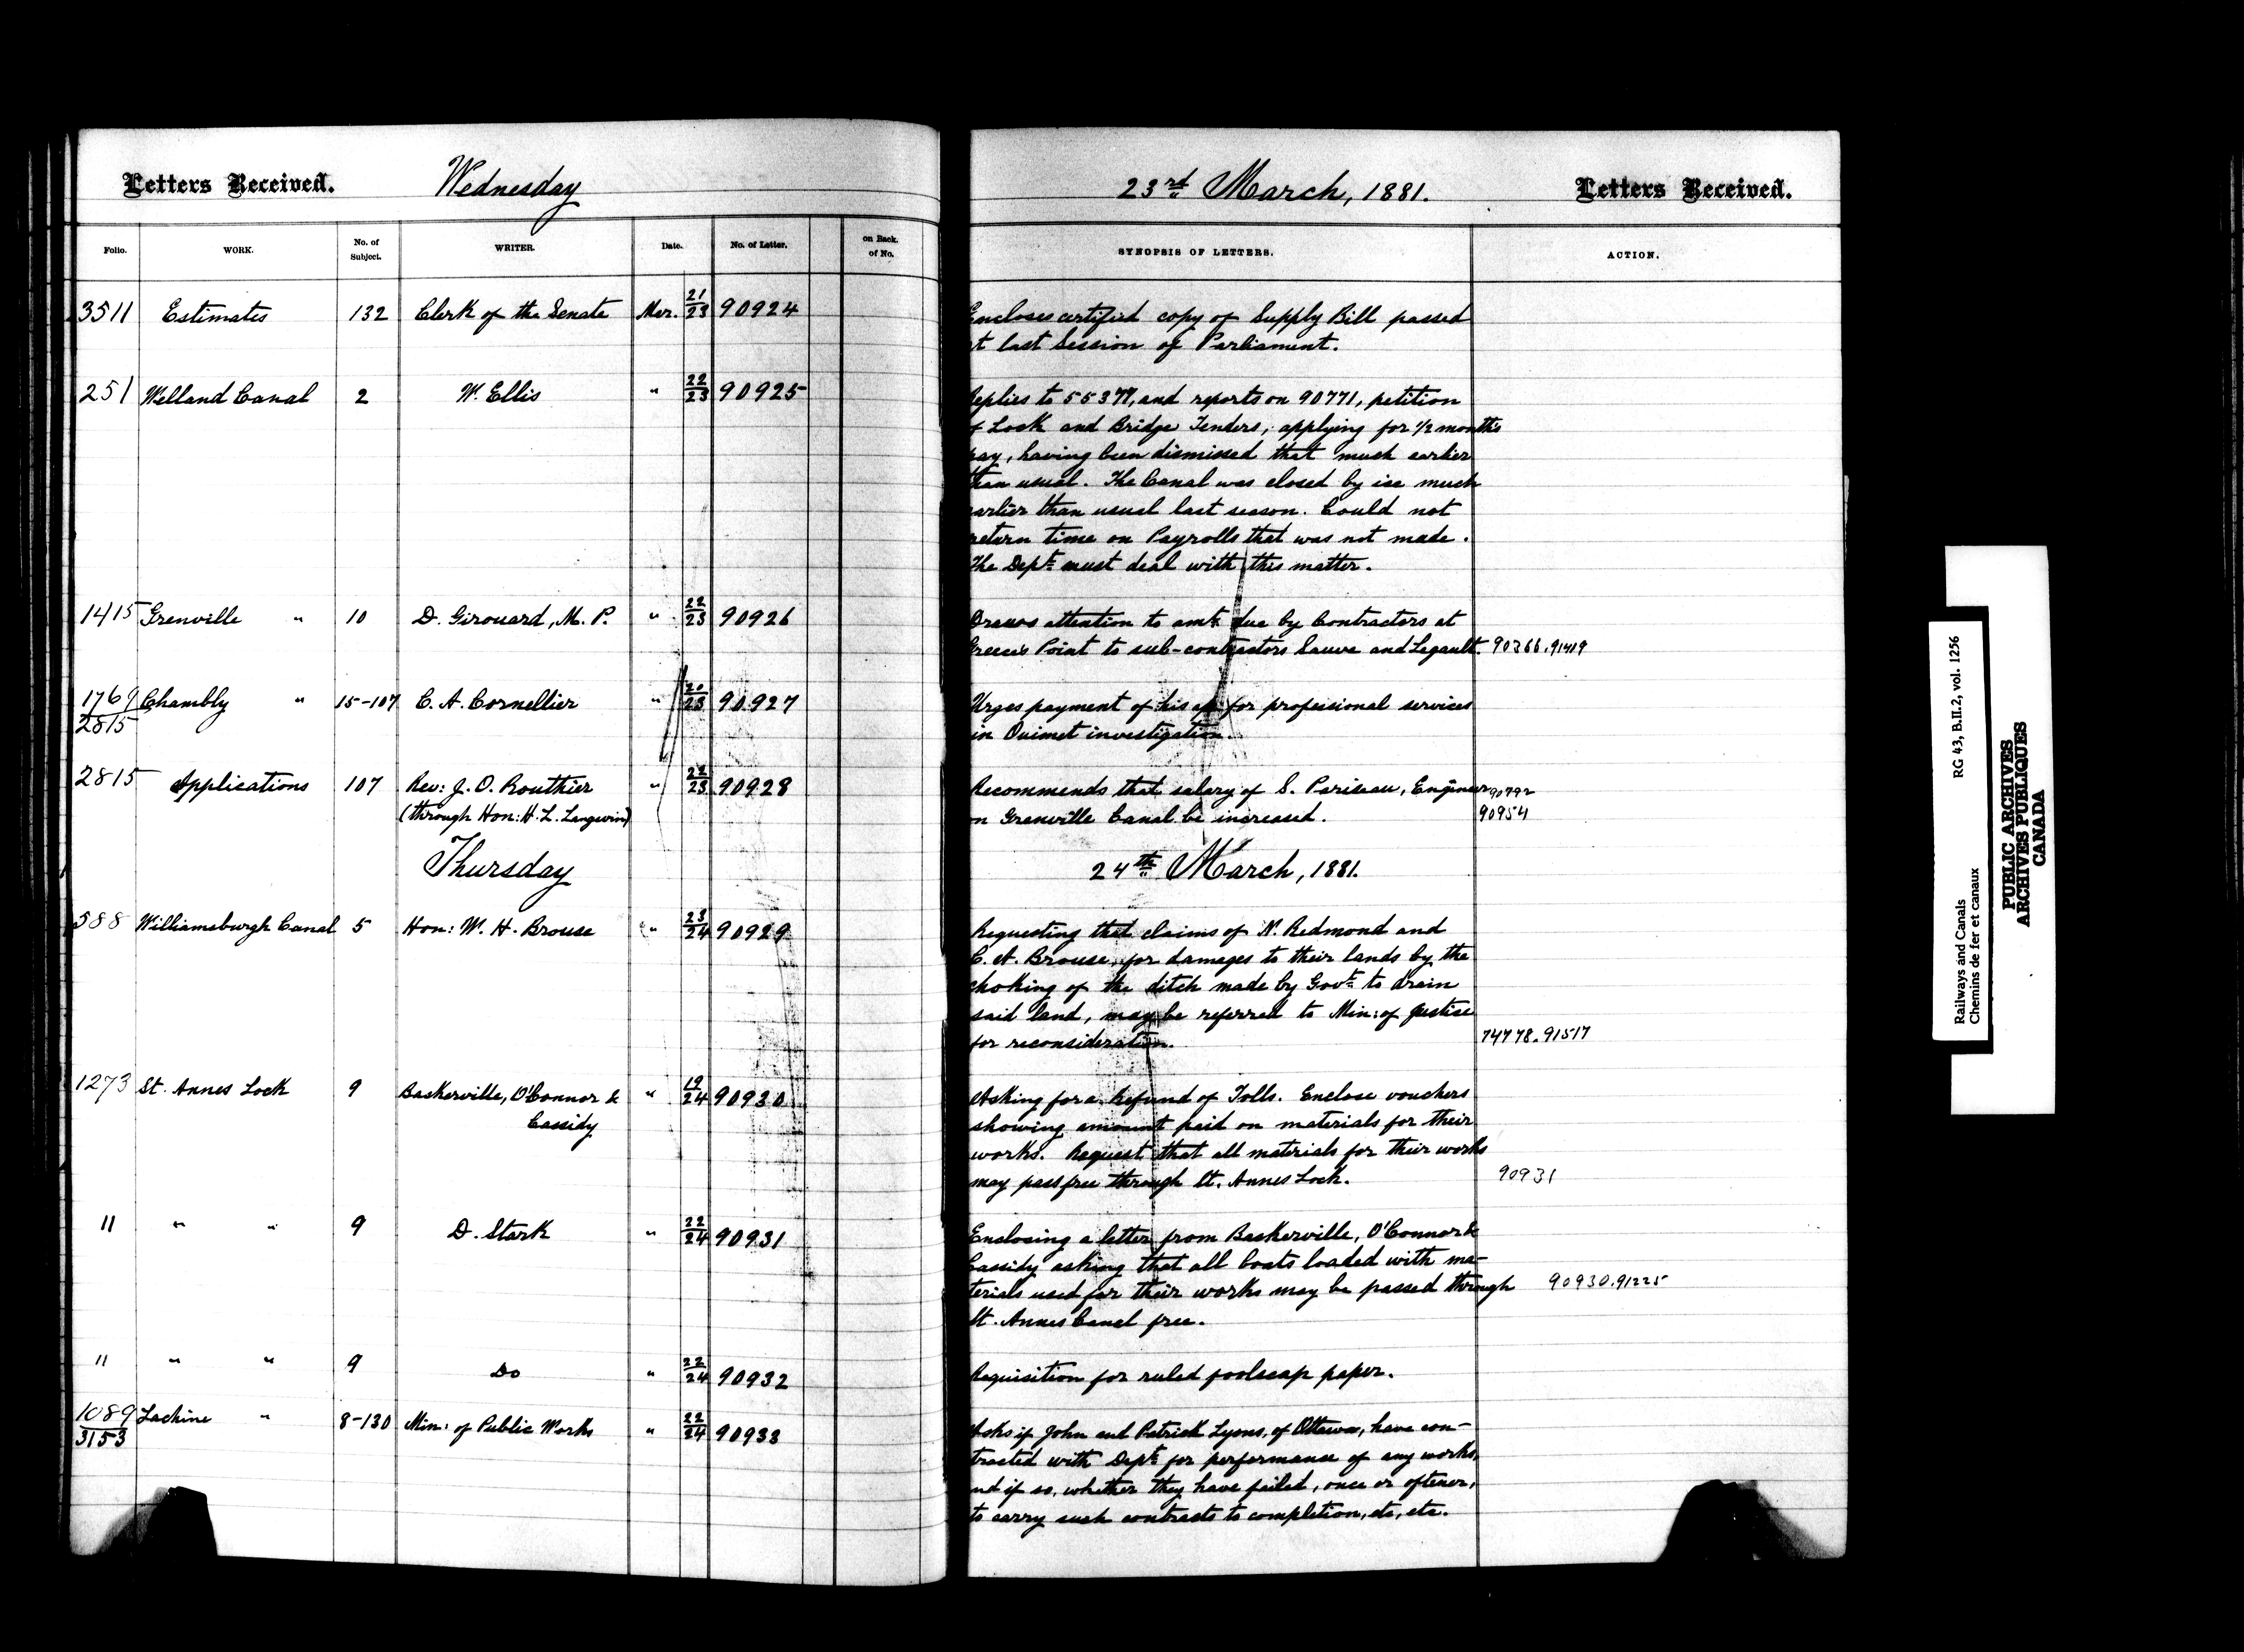 Letters Received. Wednesday 23rd March, 1881. Letters Received.
Folio. WORK. No. of Subject. WRITER. Date. No. of Letter. on Back. of No. SYNOPSIS OF LETTERS. ACTION.
3511 Estimates 132 Clerk of the Senate Mar. 21/23 90924 Encloses certified copy of Supply Bill passed
at last Session of Parliament.
251 Welland Canal 2 W. Ellis " 22/23 90925 Replies to 55377, and reports on 90771, petition
of Lock and Bridge Tenders, applying for 1/2 months
pay, having been dismissed that much earlier
than usual. The Canal was closed by ice much
earlier than usual last season. Could not
return time on Payrolls that was not made.
The Dept. must deal with this matter.
1415 Grenville " 10 D. Girouard, M. P. " 22/23 90926 Draws attention to amt. due by Contractors at
Greece's Point to sub-contractors Sauve and Legault. 90366. 91419
1769/2815 Chambly " 15-107 C. A. Cornellier " 20/23 90927 Urges payment of his a/c for professional services
in Ouimet investigation.
2815 Applications 107 Rev: J. O. Routhier " 22/23 90928 Recommends that salary of S. Pariseau, Engineer 90792
(through Hon: H. L. Langevin) on Grenville Canal be increased. 90954
Thursday 24th March, 1881.
588 Williamsburgh Canal 5 Hon: W. H. Brouse " 23/24 90929 Requesting that claims of N. Redmond and
C. A. Brouse, for damages to their lands by the
choking of the ditch made by Govt. to drain
said land, may be referred to Min: of Justice
for reconsideration. 74778. 91517
1273 St. Annes Lock 9 Baskerville, O'Connor & " 19/24 90930 Asking for a Refund of Tolls. Enclose vouchers
Cassidy showing amount paid on materials for their
works. Request that all materials for their works
may pass free through St. Annes Lock. 90931
" " " 9 D. Stark " 22/24 90931 Enclosing a letter from Baskerville, O'Connor &
Cassidy asking that all boats loaded with ma-
terials used for their works may be passed through 90930. 91225
St. Annes Canal free.
" " " 9 Do " 22/24 90932 Requisition for ruled foolscap paper.
1089/3153 Lachine " 8-130 Min: of Public Works " 22/24 90933 Asks if John and Patrick Lyons, of Ottawa, have con-
tracted with Dept. for performance of any works,
and if so, whether they have failed, once or oftener,
to carry such contracts to completion, etc, etc.
Railways and Canals RG 43, B.II.2, vol. 1256
Chemins de fer et canaux
PUBLIC ARCHIVES
ARCHIVES PUBLIQUES
CANADA